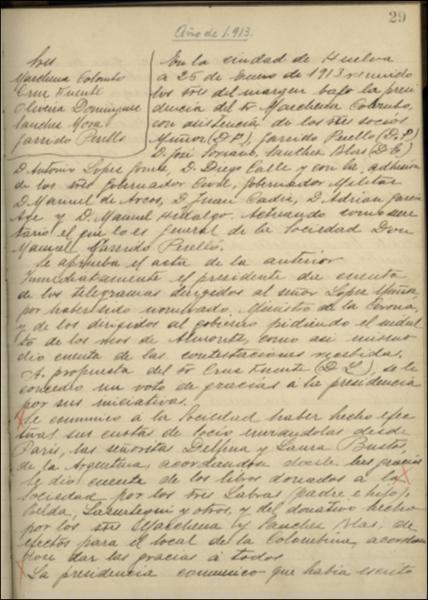 29
Año de 1.913.
Sres
Marchena Colombo
Cruz Fuente
Oliveira Domínguez
Sanchez Mora
Garrido Perelló
En la ciudad de Huelva
a 25 de Enero de 1913 reunidos
los sres del margen bajo la presi
dencia del Sr Marchena Colombo,
con asistencia de los sres socios
Muñoz (D P.), Garrido Perelló (D. P.)
D. José Soriano, Sanchez Blas (D E)
D. Antonio Lopez Gomez, D. Diego Calle y con la adhesion
de los sres Gobernador Civil, Gobernador Militar
D. Manuel de Arcos, D. Juan Cadiz, D. Adrian Garcia
Age y D. Manuel Hidalgo. Actuando como secre
tario el que lo es general de la Sociedad Don
Manuel Garrido Perelló.
Se aprueba el acta de la anterior
Inmediatamente el presidente da cuenta
de los telegramas dirigidos al señor Lopez Muñoz,
por haber sido nombrado Ministro de la Corona,
y de los dirigidos al gobierno pidiendo el indul
to de los reos de Almonte, como asi mismo
dio cuenta de las contestaciones recibidas.
A propuesta del Sr Cruz Fuente (D L), se le
concedio un voto de gracias á la presidencia
por sus iniciativas.
Se comunico á la Sociedad haber hecho efec
tivas sus cuotas de socio enviandolas desde
Paris, las señoritas Delfina y Laura Busto,
de la Argentina, acordandose darles las gracias
Se dio cuenta de los libros donados a la
Sociedad por los sres Labras (padre e hijo),
y otros, y del donativo hecho
por los sres Marchena y Sanchez Blas, de
efectos para el local de la Colombina, acordan
dose dar las gracias á todos
La presidencia comunico que habia escrito